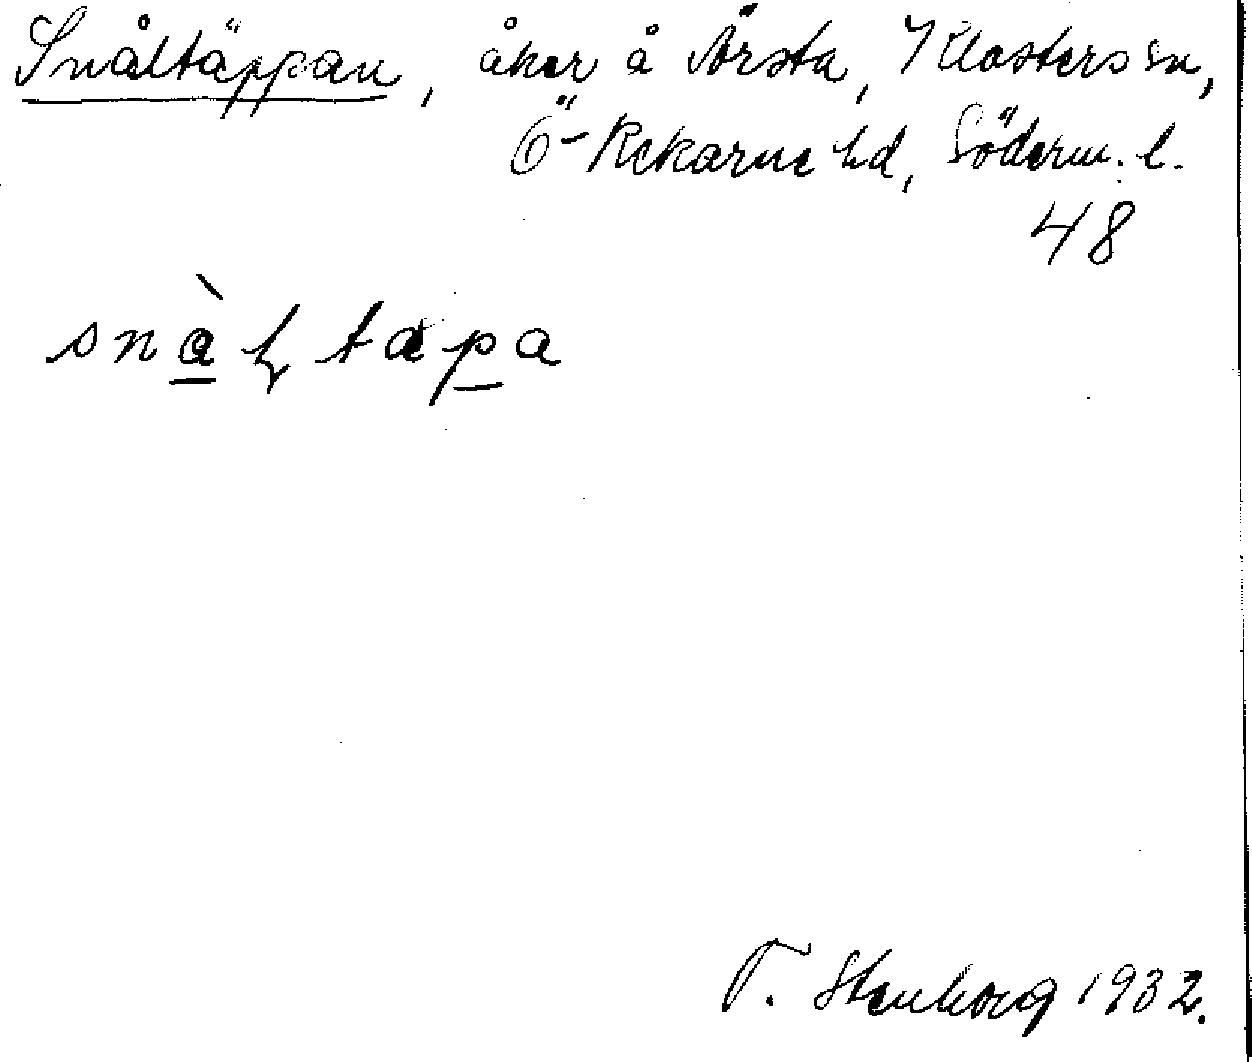 Snåltäppan, åker å Årsta, Klosters sn,
Ö-Rekarne hd, Söderm. l.
48
snàl̨tapa
T. Stenborg 1932.